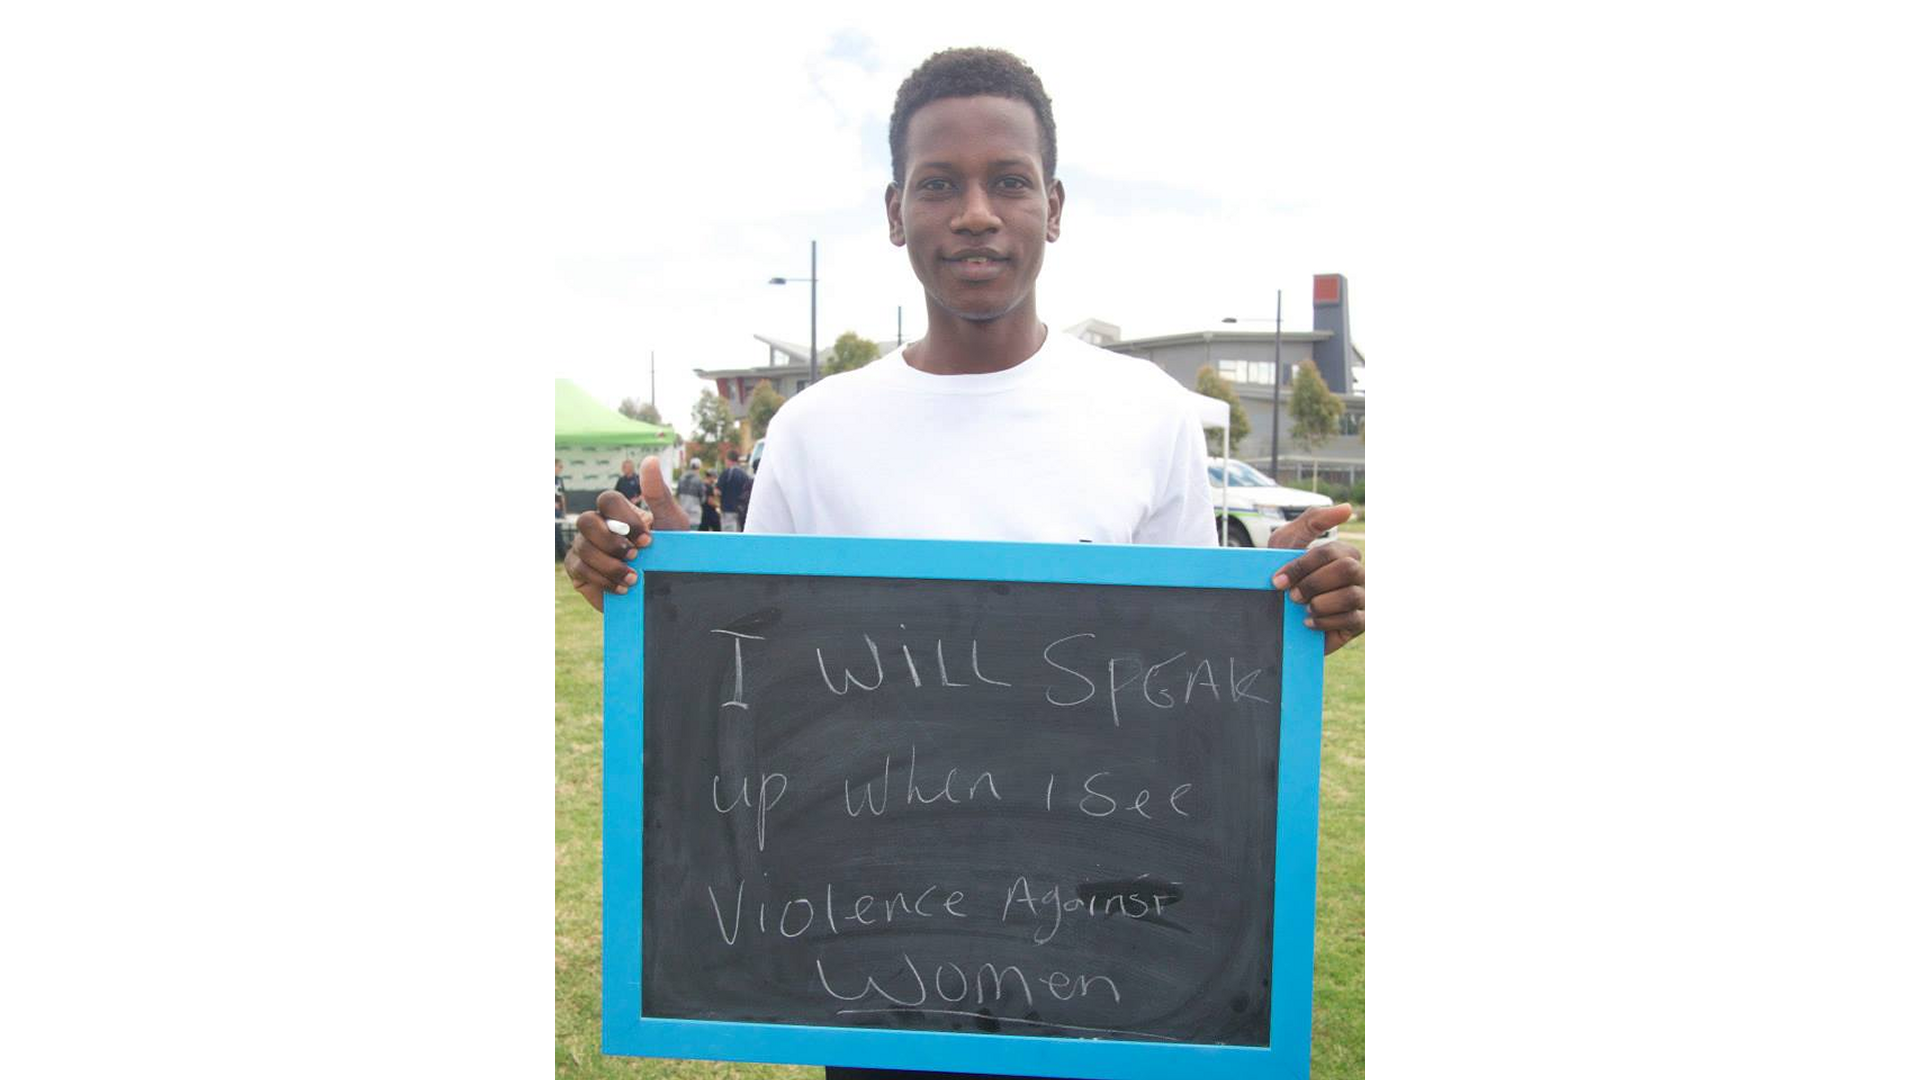 I WiLL SPEAK
up when I see
Violence Against
Women